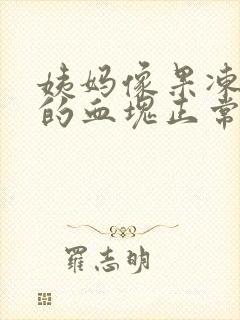 姨妈像果冻
的血块正常
羅志明